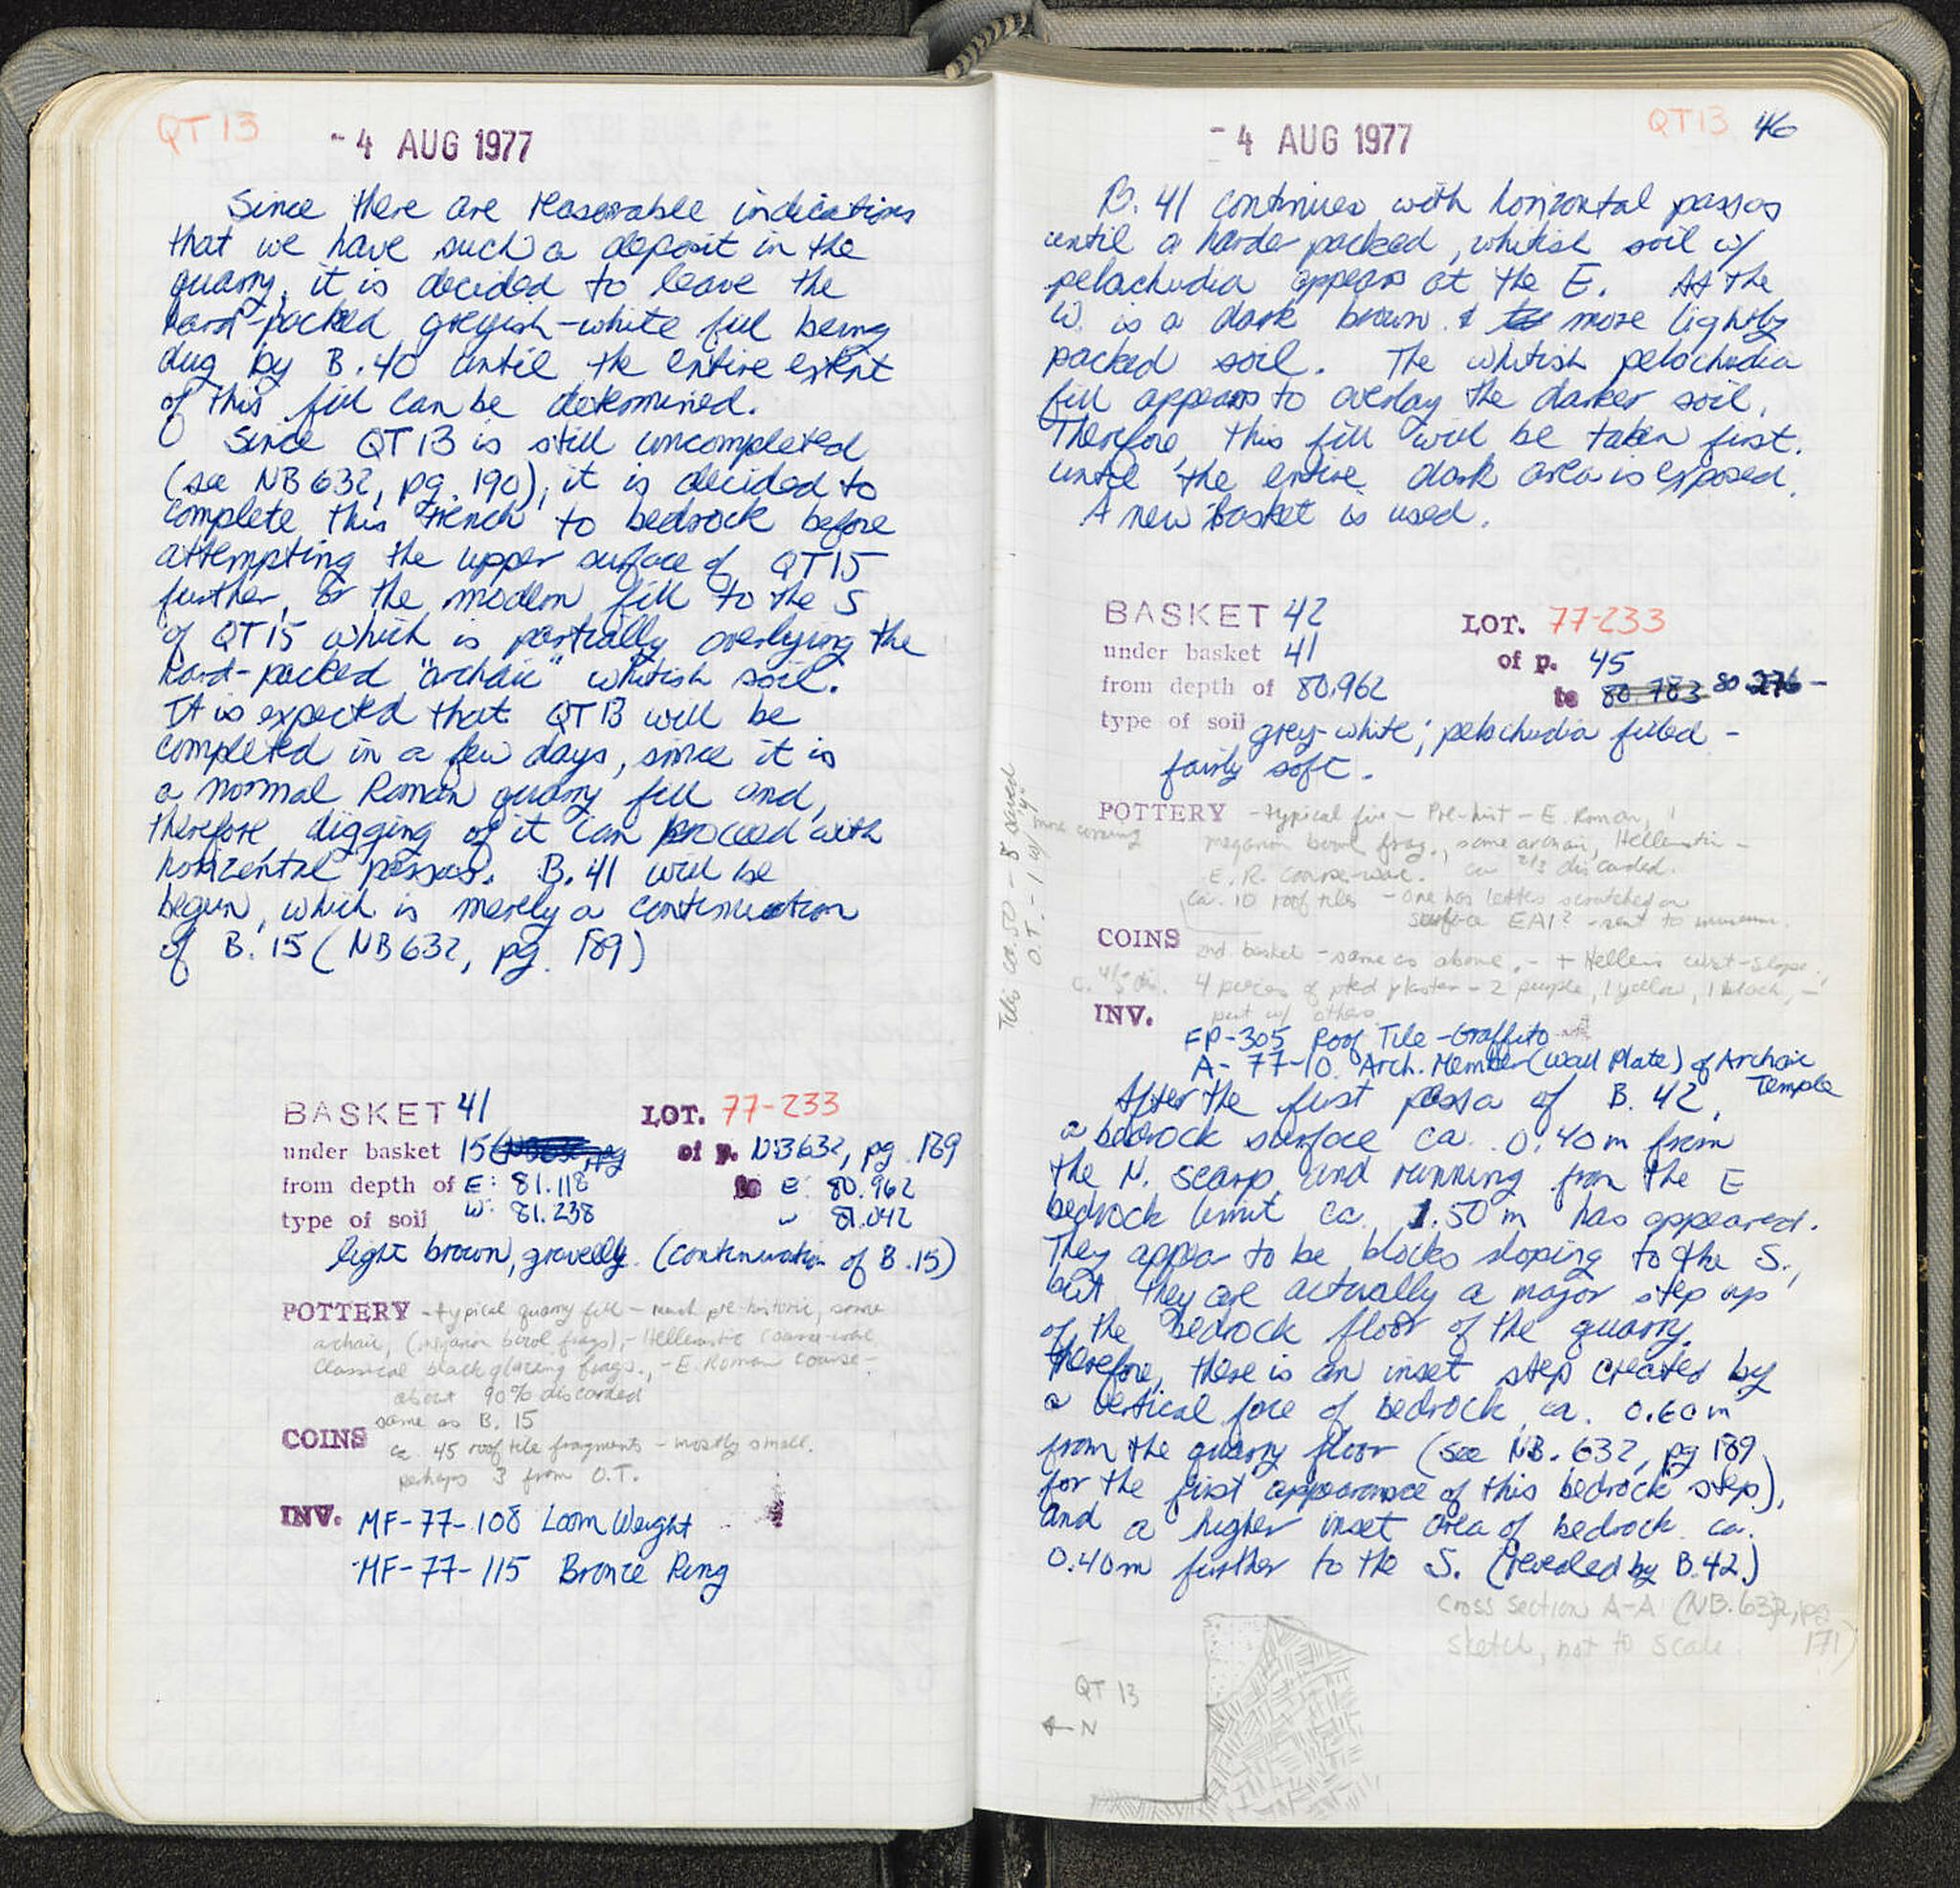 QT 13
-4 AUG 1977
Since there are reasonable indications
that we have such a deposit in the
quarry, it is decided to leave the
hard-packed greyish-white fill being
dug by B.40 until the entire extent
of this fill can be determined.
Since QT 13 is still uncompleted
(see NB 632, pg. 190), it is decided to
complete this trench to bedrock before
attempting the upper surface of QT15
further, or the modern fill to the S
of QT15 which is partially overlying the
hard-packed "archaic" whitish soil.
It is expected that QT 13 will be
completed in a few days, since it is
a normal Roman quarry fill and,
therefore, digging of it can proceed with
horizental passes. B. 41 will be
begun, which is merely a continuation
of B. 15 (NB 632, pg. 189)
BASKET 41 LOT. 77-233
under basket 15 of p. NB632, pg. 189
from depth of E: 81.118 to E: 80.962
W: 81.238 W 81.042
type of soil
light brown, gravelly. (continuation of B.15)
POTTERY - typical quarry fill - much pre-historic, some
archaic, (megarian bowl frags), - Hellenistic coarse-ware
Classical black glazing frags., - E. Roman coarse -
about 90% discarded
same as B. 15
COINS
ca. 45 roof tile fragments - mostly small.
perhaps 3 from O.T.
INV. MF-77-108 Loom Weight
MF-77-115 Bronze Ring
QT 13 46
-4 AUG 1977
B. 41 continues with horizontal passes
until a harder packed, whitish soil w/
pelochudia appears at the E. At the
W. is a dark brown & more lightly
packed soil. The whitish pelochudia
fill appears to overlay the darker soil.
Therefore, this fill will be taken first.
until the entire dark area is exposed.
A new Basket is used.
BASKET 42 LOT. 77-233
under basket 41 of p. 45
from depth of 80.962 to 80.783 80.276 -
type of soil grey-white; pelochudia filled -
fairly soft.
POTTERY - typical fill - Pre-hist - E. Roman,
megarian bowl frag., some archaic, Hellenistic -
E.R. coarse-ware. ca 2/3 discarded.
ca. 10 roof tiles - one has letters scratched on
surface EAI? - sent to museum.
COINS
2nd basket - same as above. - + Hellenis west-slope
4 pieces of pted plaster - 2 purple, 1 yellow, 1 black, -
put w/ others
INV.
FP-305 Roof Tile - Graffito
A-77-10 Arch. Member (Wall Plate) of Archaic
Temple
Tile ca. 50 - 8 saved
O.T. - 1 w/ "y"
more coming
After the first pass of B. 42,
a bedrock surface ca. 0.40m from
the N. scarp and running from the E
bedrock limit ca. 1.50m has appeared.
They appear to be blocks sloping to the S.,
but they are actually a major step up
of the bedrock floor of the quarry.
Therefore, there is an inset step created by
a vertical face of bedrock ca. 0.60m
from the quarry floor (see NB. 632, pg 189
for the first appearance of this bedrock step),
and a higher inset area of bedrock ca.
0.40m further to the S. (revealed by B.42)
cross section A-A (NB.632, pg
171)
sketch, not to scale
QT 13
← N